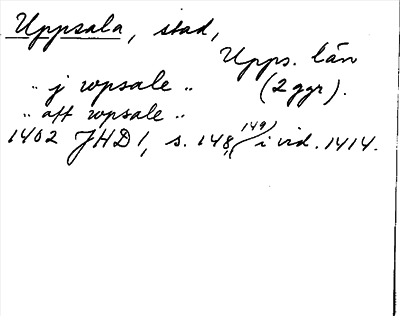 Uppsala, stad,
Upps. län
„ j vpsale „ (2 ggr).
„ aff vpsale „
1402 JHD 1, s. 148, (149) i vid. 1414.